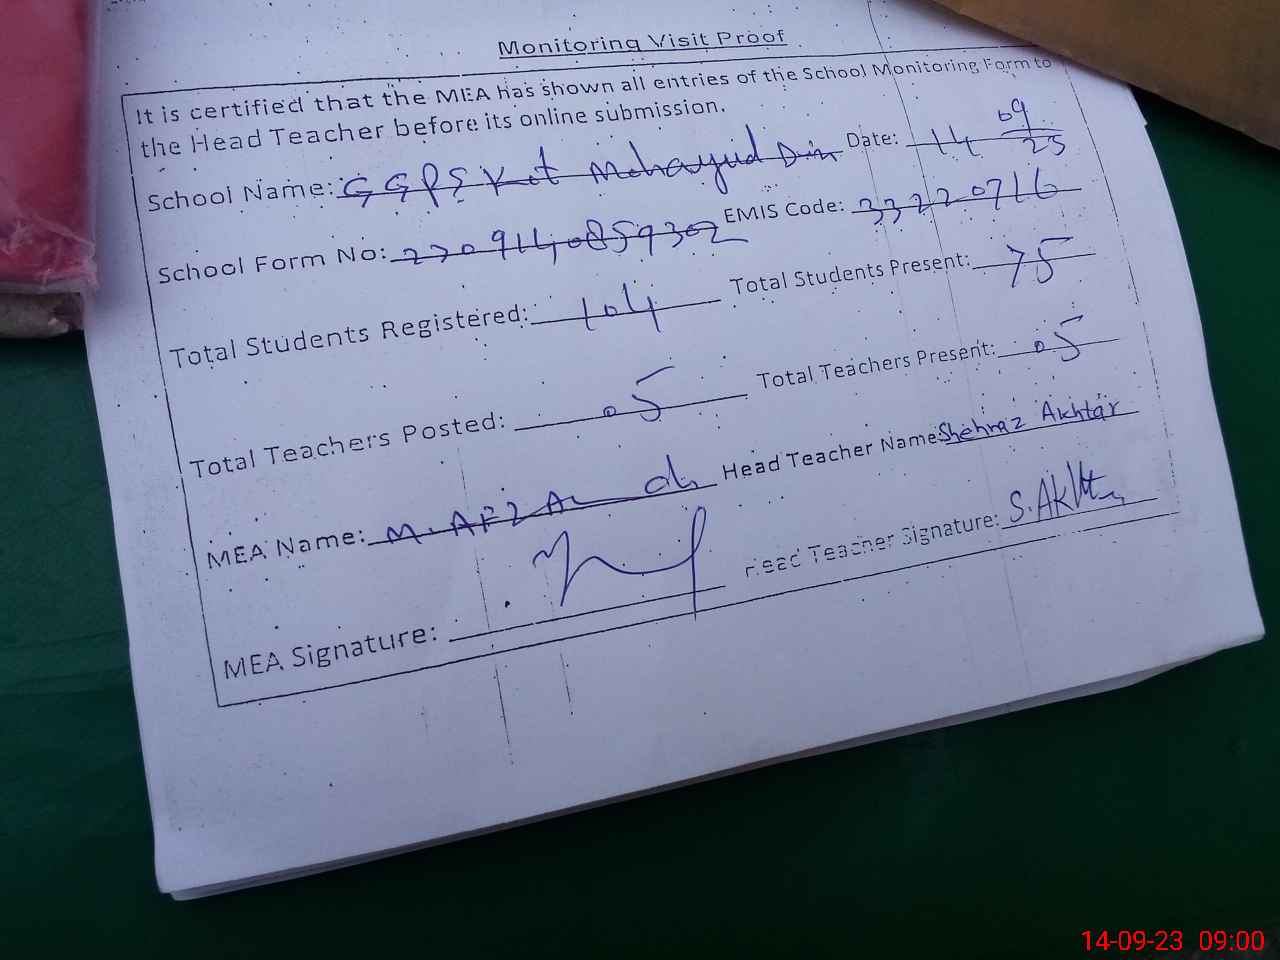 Monitoring Visit Proof
It is certified that the MEA has shown all entries of the School Monitoring Form to
the Head Teacher before its online submission.
School Name: GGPS Kot Mohayud Din Date: 14 09
23
School Form No: 2309140859302 EMIS Code: 33220716
Total Students Registered: 104 Total Students Present: 75
Total Teachers Posted: 05 Total Teachers Present: 05
MEA Name: M. AFZAL Head Teacher Name: Shehnaz Akhtar
MEA Signature: Head Teacher Signature: S.Akhtar
14-09-23 09:00